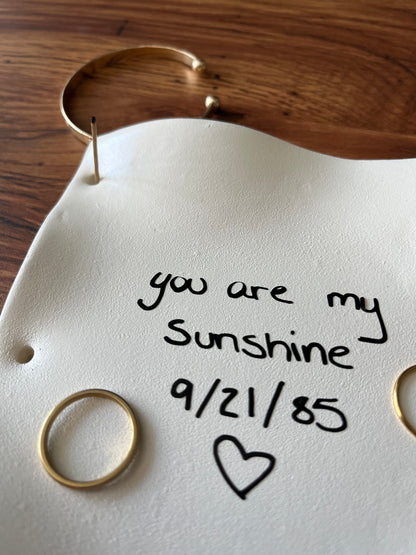 you are my
Sunshine
9/21/85